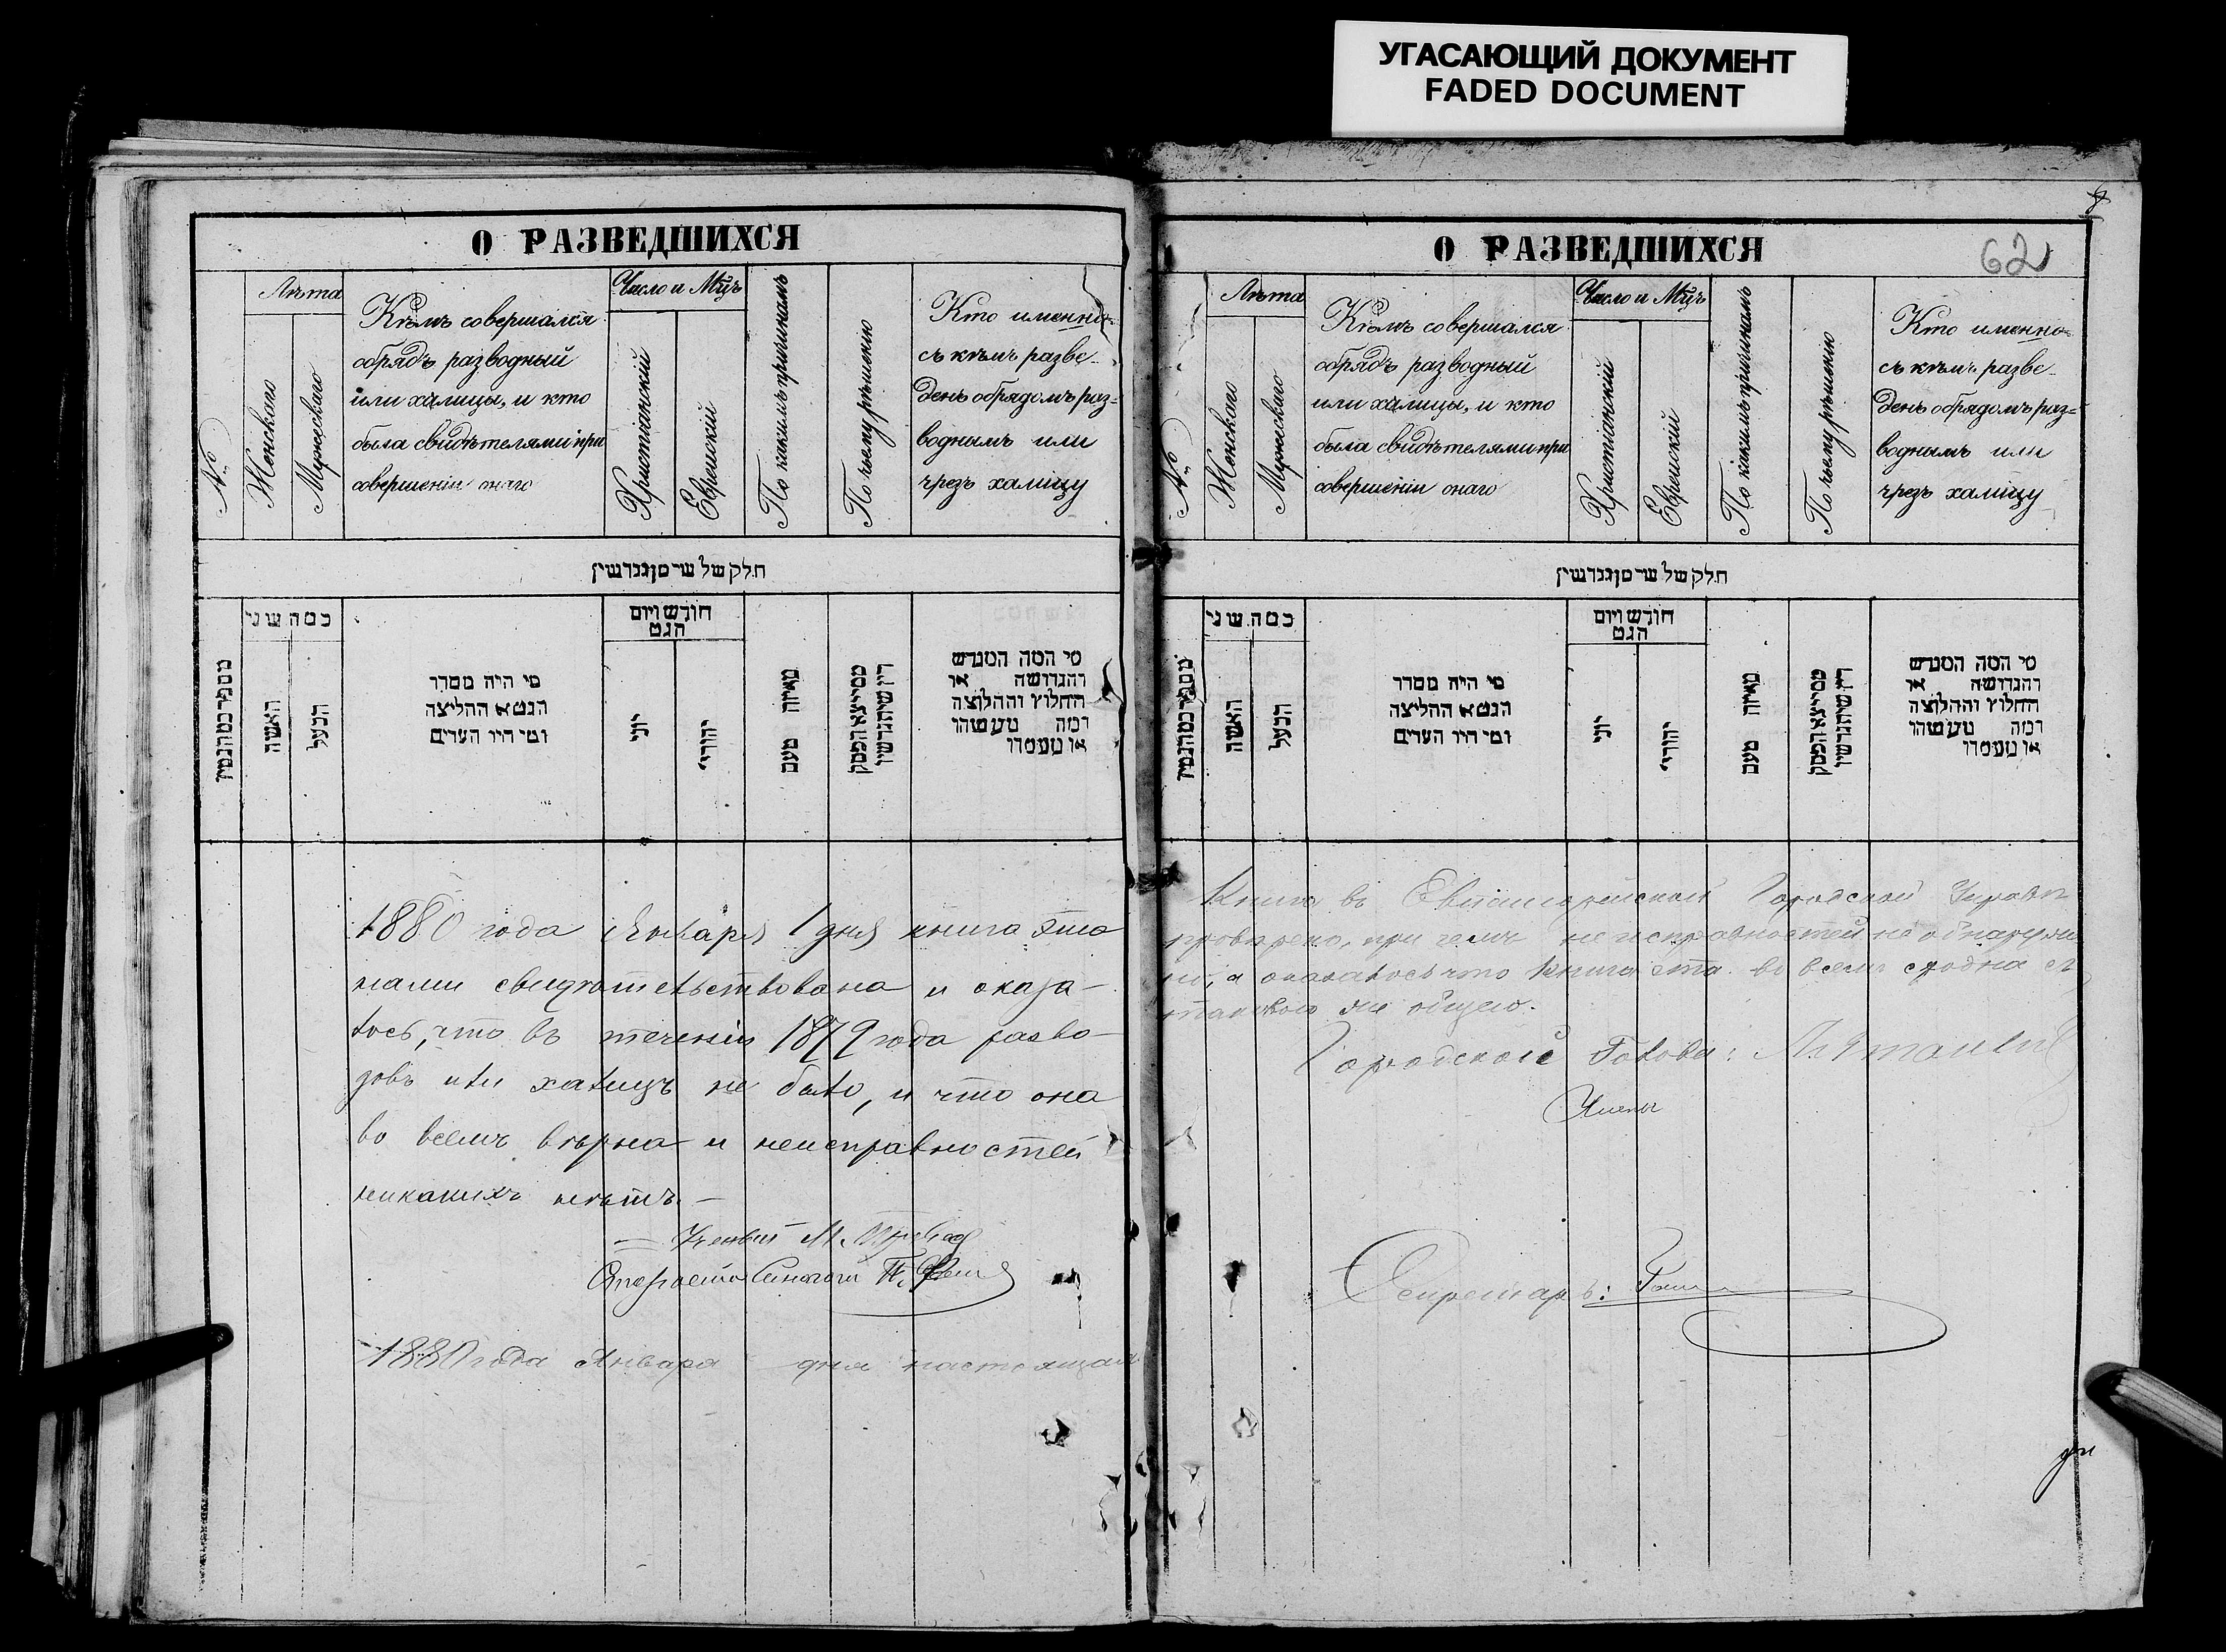 УГАСАЮЩИЙ ДОКУМЕНТ
FADED DOCUMENT
О РАЗВЕДШИХСЯ
№
Лѣта
Женскаго
Мужескаго
Кѣмъ совершался
обрядъ разводный
или халицы, и кто
была свидѣтелями при
совершеніи онаго
Число и Мцъ
Христіанскій
Еврейскій
По какимъ причинамъ
По чьему рѣшенію
Кто именно
съ кѣмъ разве-
денъ обрядомъ раз-
воднымъ или
чрезъ халицу
חלק של שר מן גנרשין
מספר כמה גטין
כמה שני
האשה
הבעל
מי היה מסדר
הגט או החליצה
ומי היו העדים
חודש ויום
הגט
יוני
יהודי
מאיזה טעם
ממי יצא הפסק
דין שיתגרשו
מי המה המגרש
והגרושה או
החלוץ והחלוצה
ומה מעשהו
או מעמדו
1880 года Января 1 дня книга эта
нами свидѣтельствована и оказа-
лось, что въ теченіи 1879 года разво-
довъ или халицъ не было, и что она
во всемъ вѣрна и неисправностей
никакихъ нѣтъ.—
Ученый М.
Староста Синагоги
1880 года Января дня настоящая
О РАЗВЕДШИХСЯ
62
№
Лѣта
Женскаго
Мужескаго
Кѣмъ совершался
обрядъ разводный
или халицы, и кто
была свидѣтелями при
совершеніи онаго
Число и Мцъ
Христіанскій
Еврейскій
По какимъ причинамъ
По чьему рѣшенію
Кто именно
съ кѣмъ разве-
денъ обрядомъ раз-
воднымъ или
чрезъ халицу
חלק של שר מן גנרשין
מספר כמה גטין
כמה שני
האשה
הבעל
מי היה מסדר
הגט או החליצה
ומי היו העדים
חודש ויום
הגט
יוני
יהודי
מאיזה טעם
ממי יצא הפסק
דין שיתגרשו
מי המה המגרש
והגרושה או
החלוץ והחלוצה
ומה מעשהו
או מעמדו
Книга въ Евпаторійской Городской Управѣ
провѣрена, при чемъ неисправностей не обнаруже
но, а оказалось что книга эта во всемъ сходна съ
таковою же общею.
Городской Голова:
Члены
Секретарь: